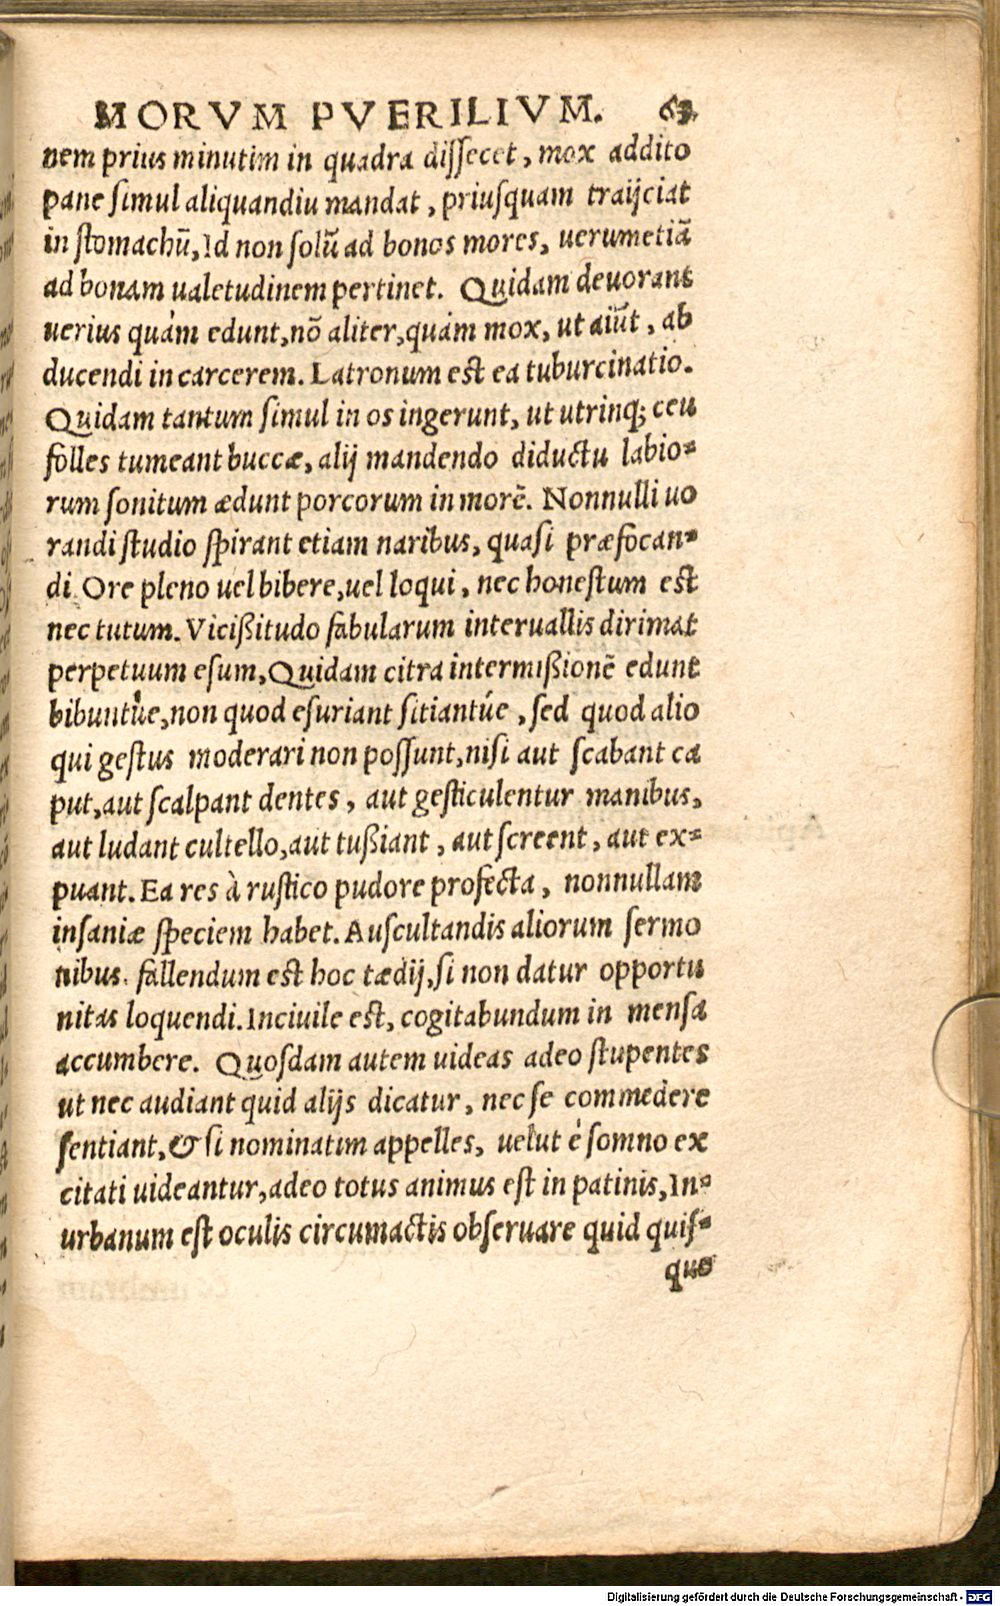 MORVM PVERILIVM. 63
nem prius minutim in quadra diſſecet, mox addito
pane ſimul aliquandiu mandat, priuſquam traijciat
in ſtomachũ, Id non ſolũ ad bonos mores, uerumetiã
ad bonam ualetudinem pertinet. Quidam deuorant
uerius quàm edunt, nõ aliter, quàm mox, ut aiũt, ab
ducendi in carcerem. Latronum est ea tuburcinatio.
Quidam tantum ſimul in os ingerunt, ut utrinq; ceu
folles tumeant buccæ, alij mandendo diductu labio-
rum ſonitum ædunt porcorum in morẽ. Nonnulli uo
randi ſtudio ſpirant etiam naribus, quaſi præfocan-
di. Ore pleno uel bibere, uel loqui, nec honeſtum est
nec tutum. Vicißitudo fabularum interuallis dirimat
perpetuum eſum, Quidam citra intermißionẽ edunt
bibuntúe, non quod eſuriant ſitiantúe, ſed quod alio
qui geſtus moderari non poſſunt, niſi aut ſcabant ca
put, aut ſcalpant dentes, aut geſticulentur manibus,
aut ludant cultello, aut tußiant, aut ſcreent, aut ex-
puant. Ea res à ruſtico pudore profecta, nonnullam
inſaniæ ſpeciem habet. Auſcultandis aliorum ſermo
nibus. fallendum est hoc tædij, ſi non datur opportu
nitas loquendi. Inciuile est, cogitabundum in menſa
accumbere. Quoſdam autem uideas adeo ſtupentes
ut nec audiant quid alijs dicatur, nec ſe commedere
ſentiant, & ſi nominatim appelles, uelut è ſomno ex
citati uideantur, adeo totus animus eſt in patinis, In-
urbanum eſt oculis circumactis obſeruare quid quiſ-
que
Digitalisierung gefördert durch die Deutsche Forschungsgemeinschaft - DFG